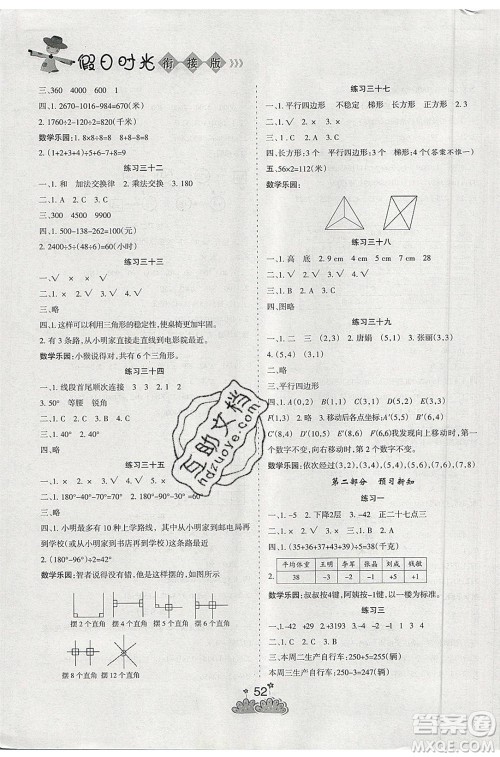 假日时光 衔接版 》》》
三、360 4000 600 1
四、1. 2670-1016-984=670(米)
2. 1760÷2-60=820(千米)
数学乐园:1. 8×8÷8=8 8+8-8=8
2. (1+2+3+4)÷5+6-7+8=9
练习三十二
一、1. 和 加法交换律 2. 乘法交换律 3. 180
二、1. × 2. ×
三、略
四、1. 500-138-262=100(元)
2. 2400÷5÷(48÷6)=60(小时)
练习三十三
一、1. √ × × √ √
二、1. C 2. A
三、略
四、1. 这样可以利用三角形的稳定性,使桌椅更加牢固。
2. 有 3 条路线,小明家直接走直线到电影院最近。
数学乐园:小猴说得对,共有 6 个三角形。
练习三十四
一、1. 线段首尾顺次连接 3 3 2. 1 3
2. 50° 等腰 锐角
二、1. √ 2. √ 3. ×
三、1. 40° 2. 90°
四、1. 60° 2. 70°
练习三十五
一、1. 180° 180° 180° 2. 60°
二、1. × 2. × 3. √
三、略
四、1. 小明最多有 10 种上学路线,其中从小明家到邮电局再
到学校(或从小明家到电影院再到学校)两条路线是一
样的。
2. (180°-96°)÷2=42°
数学乐园:智者说的错,他可能这样做的,如图所示
摆 2 个直角 摆 4 个直角 摆 6 个直角
摆 8 个直角 摆 12 个直角
练习三十七
一、1. 平行四边形 不稳定 梯形 长方形 正方形 2. 3
二、1. √ 2. × 3. ×
三、1. C 2. A
四、长方形 平行四边形 梯形 4 个三角形(答案不唯一)
五、56×2=112(米)
数学乐园:
练习三十八
一、1. 高 底 2. 9 cm 4 cm 3. 5 cm 2 cm
二、1. √ 2. √ 3. √
三、1. A 2. C 3. C
四、图略
练习三十九
一、1. × √ × × 2. (3,4) 唐娟 3. 张丽(3,4)
4. (5,4) (3,1)
二、略
三、平行四边形
四、1. 图略 2. A(0,1) B(3,1) C(3,4) D(0,4) E(5,1)
F(1,3) 3. 移动后各点坐标:A′(5,5) B′(8,5)
C′(8,4) D′(5,4) E′(6,6) F′(6,7) 发现向上移动时,第一个
数字不变,向右移动时,第二个数字不变。
数学乐园:依次经过(3,1)(3,2)(5,2)(5,6)(7,6)(7,8)
第二部分 预习新知
练习一
一、1. -5 2. 下降2层 3. -42 正二十七点三
二、1. C 2. B 3. C
三、1. × 2. × 3. √
四、1. (35+36+37+43+39)÷5=38(千克)
2. 平均体重 王明 李敏 张晶 刘成 赵敏
38 -3 -2 -1 +5 +1
数学乐园:叔叔按4键,阿姨按-1键,以此类推。
练习三
一、1. 133 2. 6 3. 42
二、1. × 2. √ 3. √
三、本周二生产自行车:250-7=243(辆)
本周五生产自行车:250+27=277(辆)
52
互助文档
hdzuoye.com
答案圈
MXQE.COM